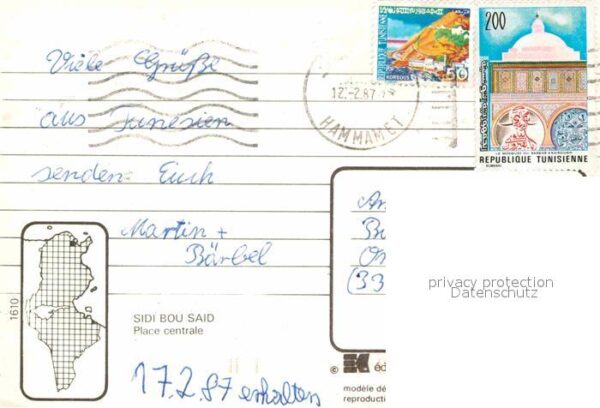 200
REPUBLIQUE TUNISIENNE
KORBOUS
50
12.-2.87
HAMMAMET
REPUBLIQUE TUNISIENNE
Viele Grüße
aus Tunesien
senden Euch
Martin +
Bärbel
(33
privacy protection
Datenschutz
1610
SIDI BOU SAID
Place centrale
17.2.87 erhalten
©
éd
modèle dé
reproductio